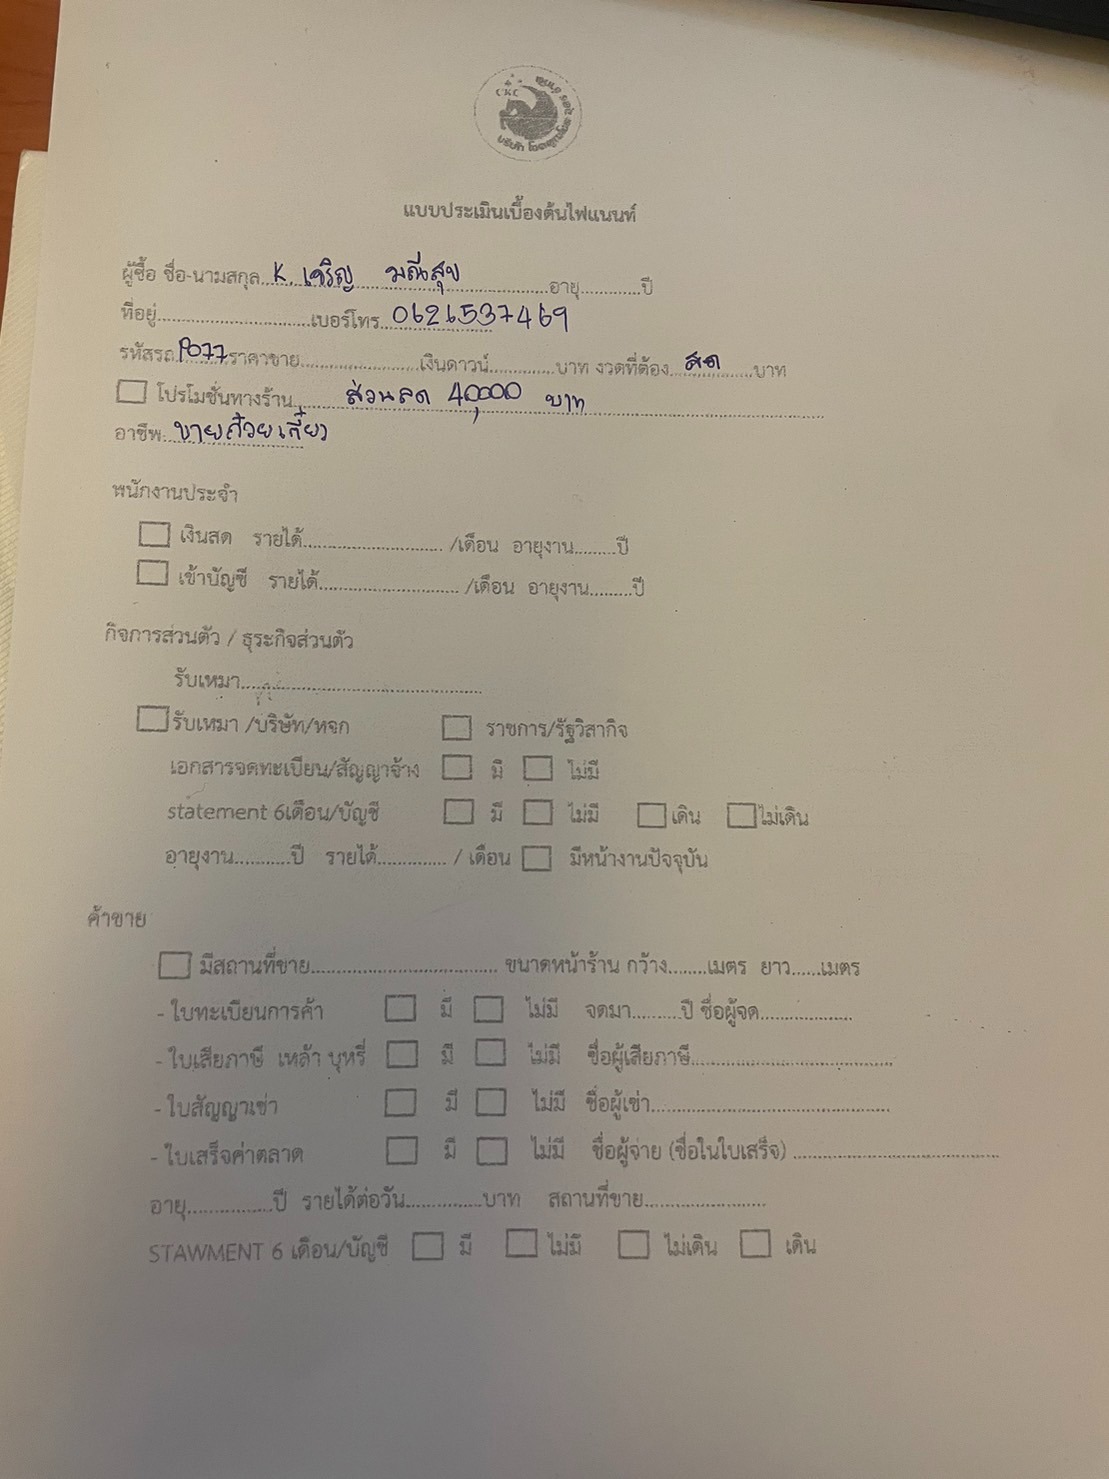 CKC
แบบประเมินเบื้องต้นไฟแนนท์
ผู้ซื้อ ชื่อ-นามสกุล K. เจริญ มณีสุข อายุ............ปี
ที่อยู่..............................เบอร์โทร 0621537469
รหัสรถ P077 ราคาขาย........................เงินดาวน์.............บาท งวดที่ต้อง สด บาท
☐ โปรโมชั่นทางร้าน ส่วนลด 40,000 บาท
อาชีพ ขายก๋วยเตี๋ยว
พนักงานประจำ
☐ เงินสด รายได้............................ /เดือน อายุงาน........ปี
☐ เข้าบัญชี รายได้............................ /เดือน อายุงาน........ปี
กิจการส่วนตัว / ธุระกิจส่วนตัว
รับเหมา................................................
☐ รับเหมา /บริษัท/หจก ☐ ราชการ/รัฐวิสากิจ
เอกสารจดทะเบียน/สัญญาจ้าง ☐ มี ☐ ไม่มี
statement 6เดือน/บัญชี ☐ มี ☐ ไม่มี ☐ เดิน ☐ ไม่เดิน
อายุงาน...........ปี รายได้.............. / เดือน ☐ มีหน้างานปัจจุบัน
ค้าขาย
☐ มีสถานที่ขาย..................................... ขนาดหน้าร้าน กว้าง.......เมตร ยาว......เมตร
- ใบทะเบียนการค้า ☐ มี ☐ ไม่มี จดมา..........ปี ชื่อผู้จด..................
- ใบเสียภาษี เหล้า บุหรี่ ☐ มี ☐ ไม่มี ชื่อผู้เสียภาษี........................................
- ใบสัญญาเช่า ☐ มี ☐ ไม่มี ชื่อผู้เช่า................................................
- ใบเสร็จค่าตลาด ☐ มี ☐ ไม่มี ชื่อผู้จ่าย (ชื่อในใบเสร็จ) .........................................
อายุ.................ปี รายได้ต่อวัน...............บาท สถานที่ขาย.........................
STAWMENT 6 เดือน/บัญชี ☐ มี ☐ ไม่มี ☐ ไม่เดิน ☐ เดิน